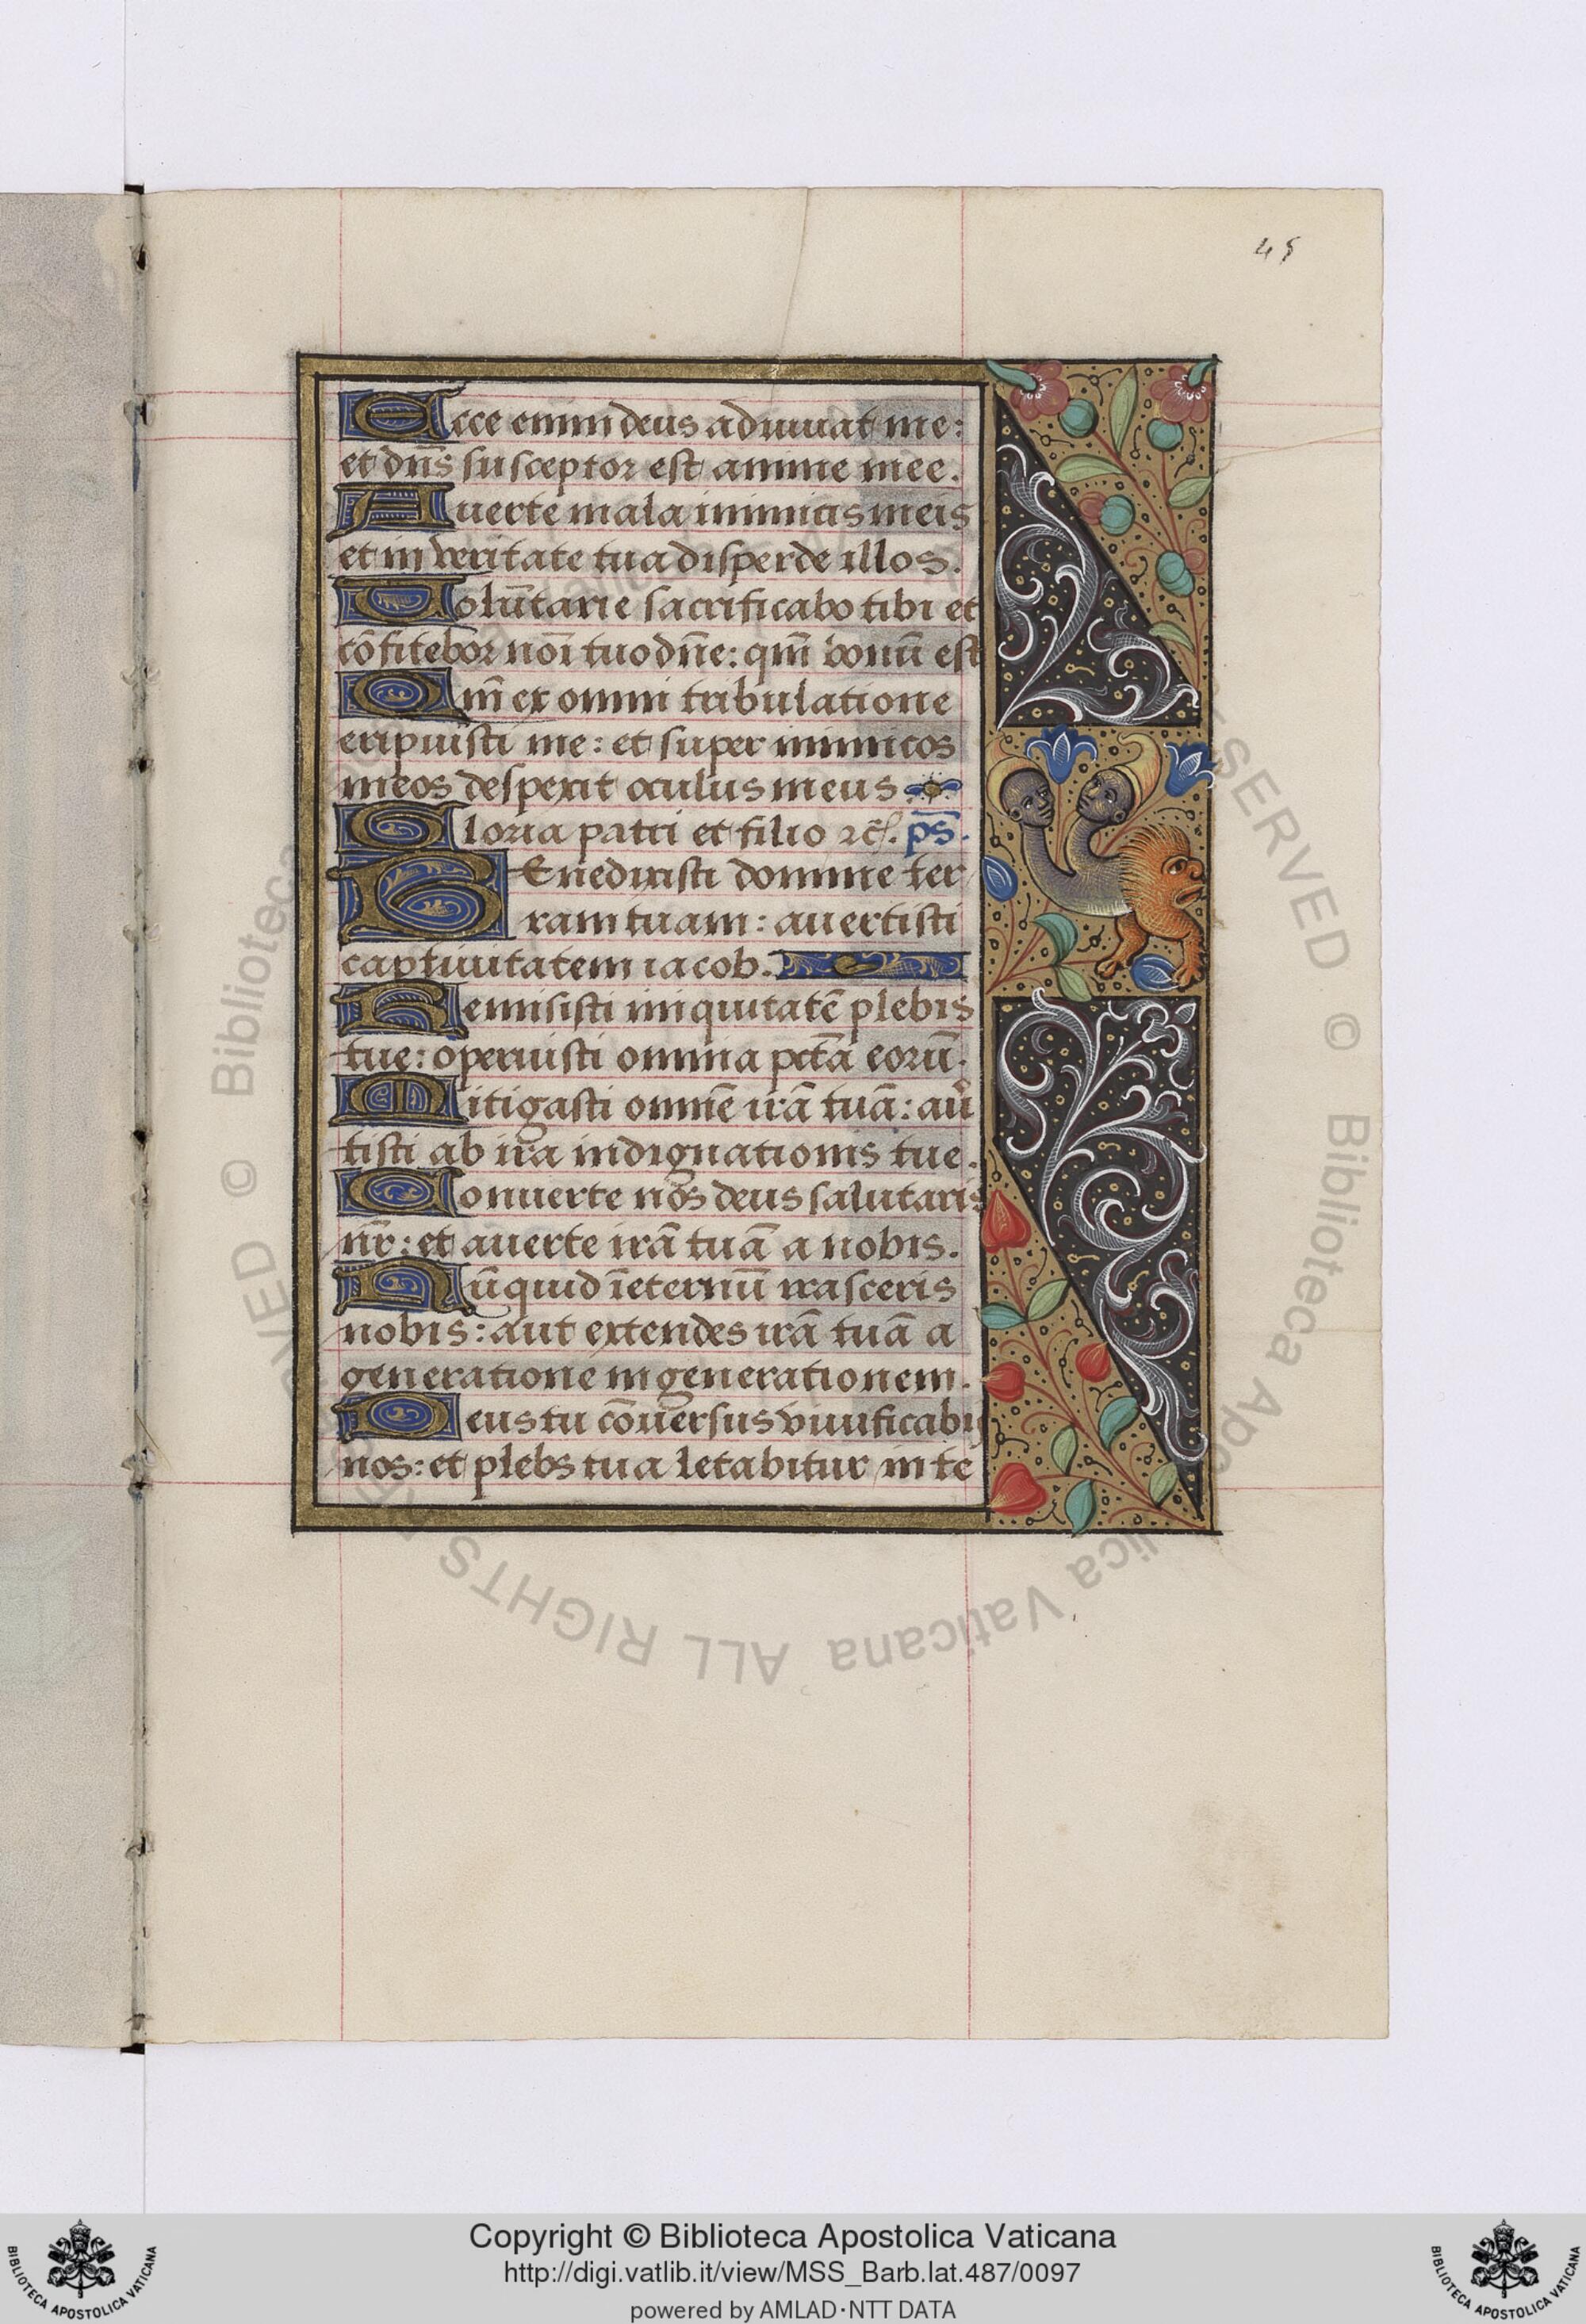 45
Ecce enim deus adiuuat me:
et dñs susceptor est anime mee.
Auerte mala inimicis meis
et in veritate tua disperde illos.
Volūtarie sacrificabo tibi et
cōfitebor noī tuo dñe: qm̄ bonū est
Qm̄ ex omni tribulatione
eripuisti me: et super inimicos
meos despexit oculus meus.
Gloria patri et filio ⁊c̄. ps̄.
BEnedixisti domine ter
ram tuam: auertisti
captiuitatem iacob.
Remisisti iniquitatē plebis
tue: operuisti omnia pctā eorū.
Mitigasti omnē irā tuā: aũ
tisti ab ira indignationis tue.
Conuerte nos deus salutaris
nr̄: et auerte irā tuā a nobis.
Nūquid īeternū irasceris
nobis: aut extendes irā tuā a
generatione in generationem.
Deus tu cōuersus viuificabis
nos: et plebs tua letabitur in te
Copyright © Biblioteca Apostolica Vaticana
http://digi.vatlib.it/view/MSS_Barb.lat.487/0097
powered by AMLAD·NTT DATA
BIBLIOTECA APOSTOLICA VATICANA
BIBLIOTECA APOSTOLICA VATICANA